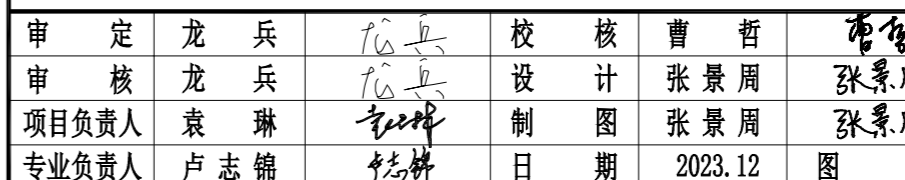 审 定 龙 兵 龙兵 校 核 曹 哲 曹哲
审 核 龙 兵 龙兵 设 计 张景周 张景周
项目负责人 袁 琳 袁琳 制 图 张景周 张景周
专业负责人 卢志锦 卢志锦 日 期 2023.12 图